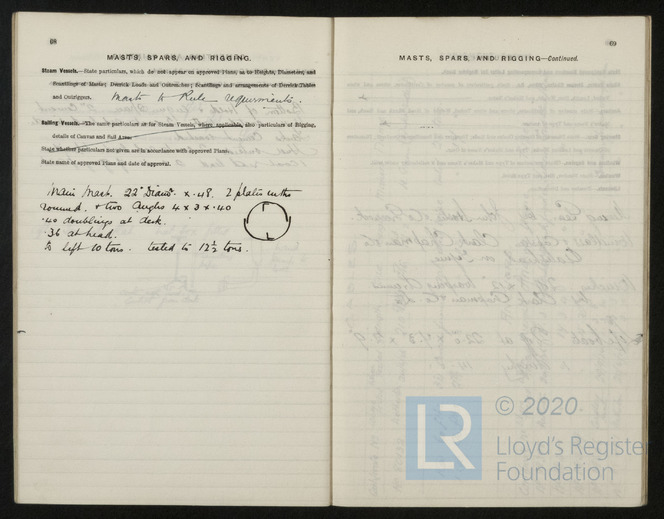 68
MASTS, SPARS, AND RIGGING.
Steam Vessels.—State particulars, which do not appear on approved Plans, as to Heights, Diameters, and
Scantlings of Masts; Derrick Loads and Outreaches; Scantlings and arrangements of Derrick Tables
and Outriggers. Masts to Rule requirements.
Sailing Vessels.—The same particulars as for Steam Vessels, where applicable, also particulars of Rigging,
details of Canvas and Sail Area.
State whether particulars not given are in accordance with approved Plans.
State name of approved Plans and date of approval.
Main Mast. 22" Diamr x .48. 2 plates in the
round. + two Angles 4 x 3 x .40
.40 doublings at deck.
.36 at head.
To lift 10 tons. tested to 12½ tons.
69
MASTS, SPARS, AND RIGGING—Continued.
© 2020
LR
Lloyd's Register
Foundation